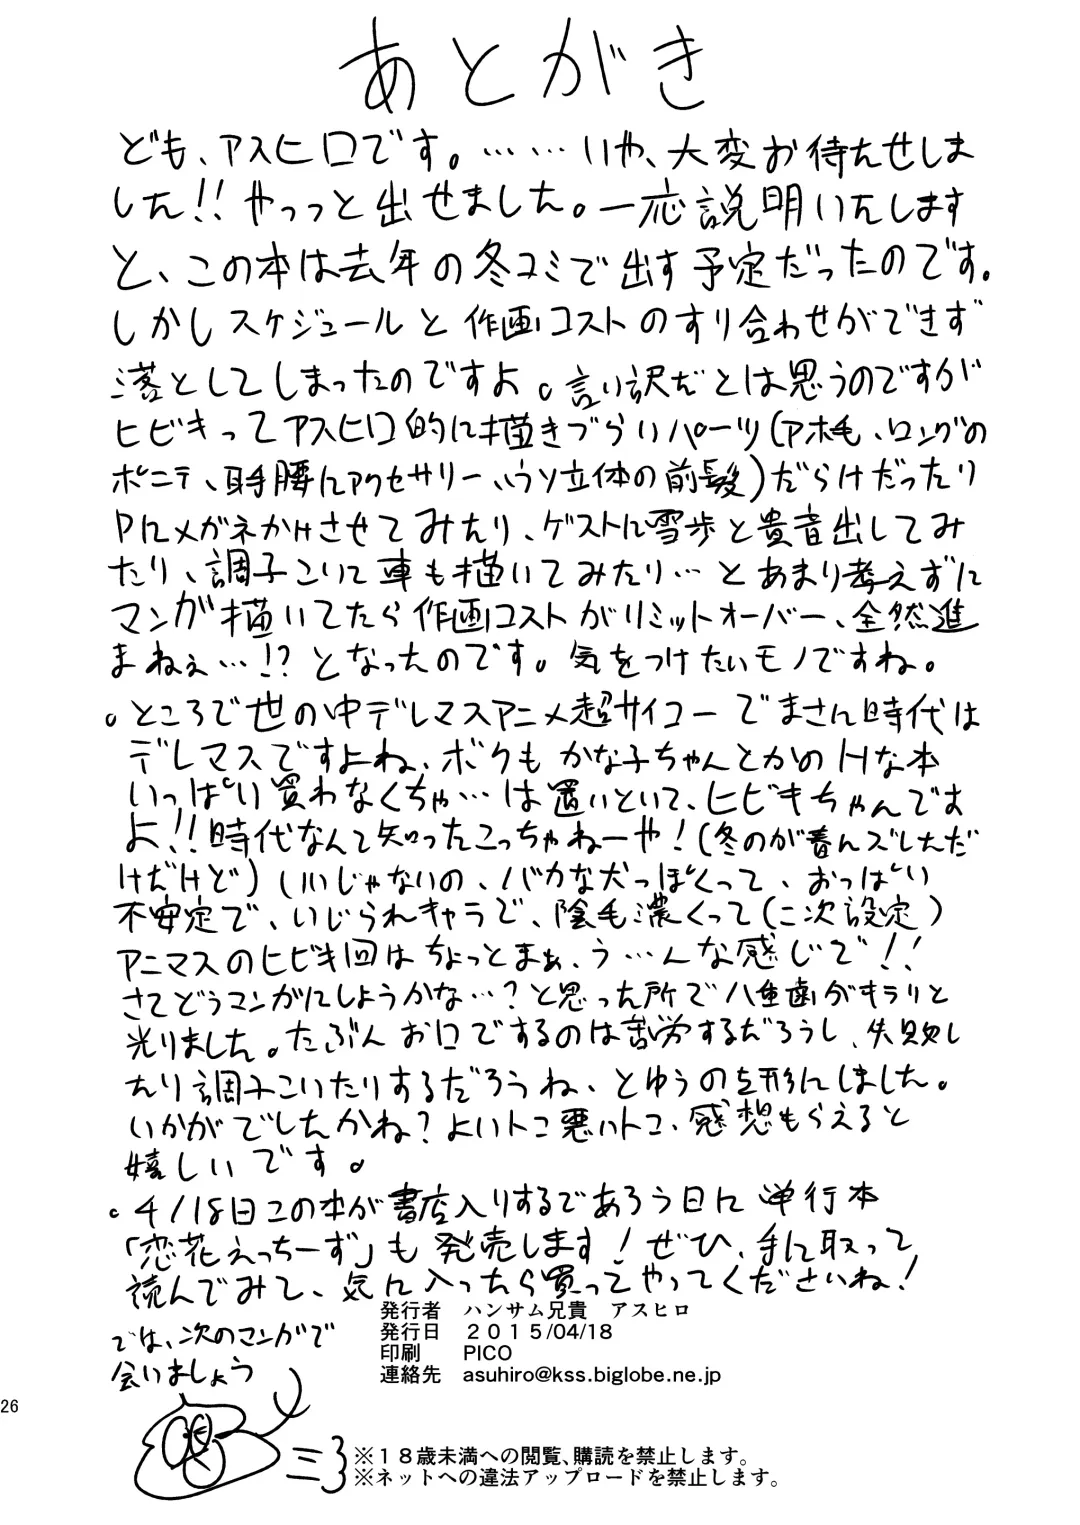 あとがき
ども、アスヒロです。……いや、大変お待たせしま
した!!やっっと出せました。一応説明いたします
と、この本は去年の冬コミで出す予定だったのです。
しかしスケジュールと作画コストのすり合わせができず
落としてしまったのですよ。言い訳だとは思うのですが
ヒビキってアスヒロ的に描きづらいパーツ(アホ毛、ロングの
ポニテ、手腰にアクセサリー、ウソ立体の前髪)だらけだったり
Pにメガネかけさせてみたり、ゲストに雪歩と貴音出してみ
たり、調子こいて車も描いてみたり…とあまり考えずに
マンガ描いてたら作画コストがリミットオーバー、全然進
まねぇ…!?となったのです。気をつけたいモノですね。
。ところで世の中デレマスアニメ超サイコーでまさに時代は
デレマスですよね、ボクもかな子ちゃんとかのHな本
いっぱい買わなくちゃ…は置いといて、ヒビキちゃんです
よ!!時代なんて知ったこっちゃねーや!(冬のが着んズレただ
けだけど)いいじゃないの、バカな犬っぽくって、おっぱい
不安定で、いじられキャラで、陰毛濃くって(二次設定)
アニマスのヒビキ回はちょっとまぁ、う…んな感じで!!
さてどうマンガにしようかな…?と思った所で八重歯がキラリと
光りました。たぶんお口でするのは苦労するだろうし、失敗し
たり調子こいたりするだろうね、とゆうのを形にしました。
いかがでしたかね?よいトコ悪いトコ、感想もらえると
嬉しいです。
。4/18日この本が書店入りするであろう日に単行本
「恋花えっちーず」も発売します!ぜひ、手に取って
読んでみて、気に入ったら買ってやってくださいね!
発行者　ハンサム兄貴　アスヒロ
発行日　２０１５/04/18
印刷　PICO
連絡先　asuhiro@kss.biglobe.ne.jp
では、次のマンガで
会いましょう
26
※１８歳未満への閲覧、購読を禁止します。
※ネットへの違法アップロードを禁止します。